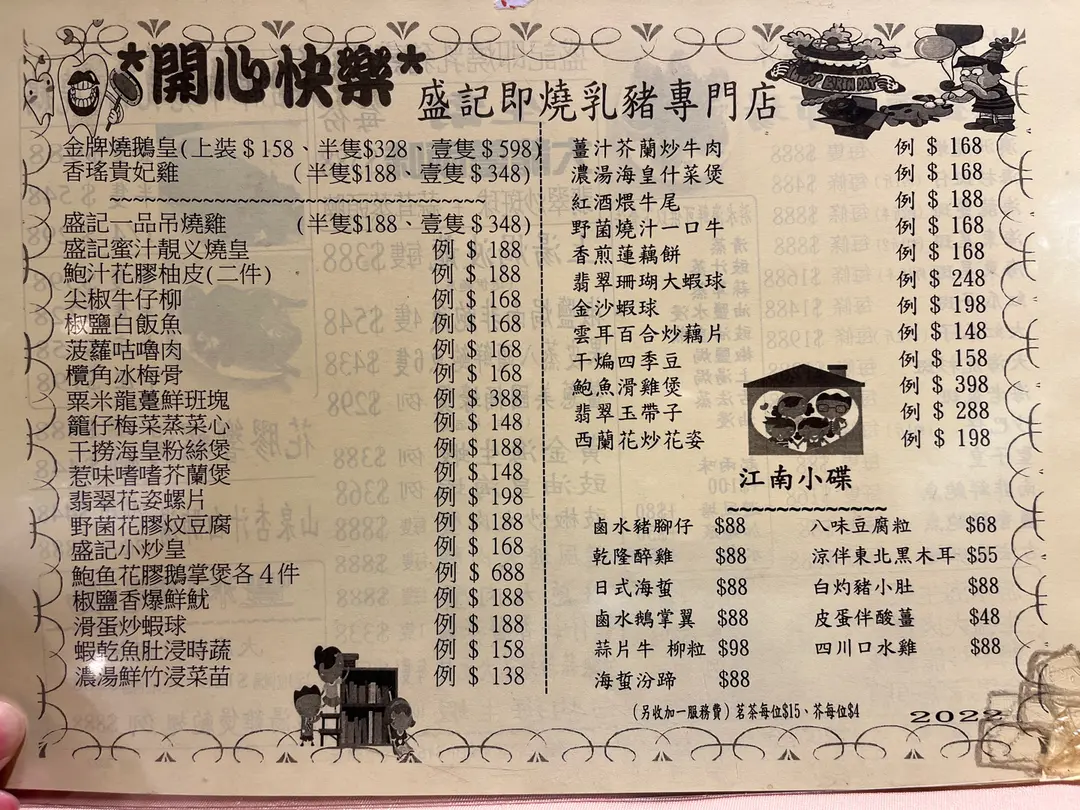 *開心快樂*
盛記即燒乳豬專門店
金牌燒鵝皇(上裝$158、半隻$328、壹隻$598)
香瑤貴妃雞 (半隻$188、壹隻$348)
盛記一品吊燒雞 (半隻$188、壹隻$348)
盛記蜜汁靚义燒皇 例 $ 188
鮑汁花膠柚皮(二件) 例 $ 188
尖椒牛仔柳 例 $ 168
椒鹽白飯魚 例 $ 168
菠蘿咕嚕肉 例 $ 168
欖角冰梅骨 例 $ 168
粟米龍躉鮮班塊 例 $ 388
籠仔梅菜蒸菜心 例 $ 148
干撈海皇粉絲煲 例 $ 188
惹味嗜嗜芥蘭煲 例 $ 148
翡翠花姿螺片 例 $ 198
野菌花膠炆豆腐 例 $ 188
盛記小炒皇 例 $ 168
鮑鱼花膠鵝掌煲各4件 例 $ 688
椒鹽香爆鮮魷 例 $ 188
滑蛋炒蝦球 例 $ 188
蝦乾魚肚浸時蔬 例 $ 158
濃湯鮮竹浸菜苗 例 $ 138
薑汁芥蘭炒牛肉 例 $ 168
濃湯海皇什菜煲 例 $ 168
紅酒煨牛尾 例 $ 188
野菌燒汁一口牛 例 $ 168
香煎蓮藕餅 例 $ 168
翡翠珊瑚大蝦球 例 $ 248
金沙蝦球 例 $ 198
雲耳百合炒藕片 例 $ 148
干煸四季豆 例 $ 158
鮑魚滑雞煲 例 $ 398
翡翠玉帶子 例 $ 288
西蘭花炒花姿 例 $ 198
江南小碟
鹵水豬腳仔 $88
乾隆醉雞 $88
日式海蜇 $88
鹵水鵝掌翼 $88
蒜片牛 柳粒 $98
海蜇汾蹄 $88
八味豆腐粒 $68
涼伴東北黑木耳 $55
白灼豬小肚 $88
皮蛋伴酸薑 $48
四川口水雞 $88
(另收加一服務費) 茗茶每位$15、芥每位$4
2022